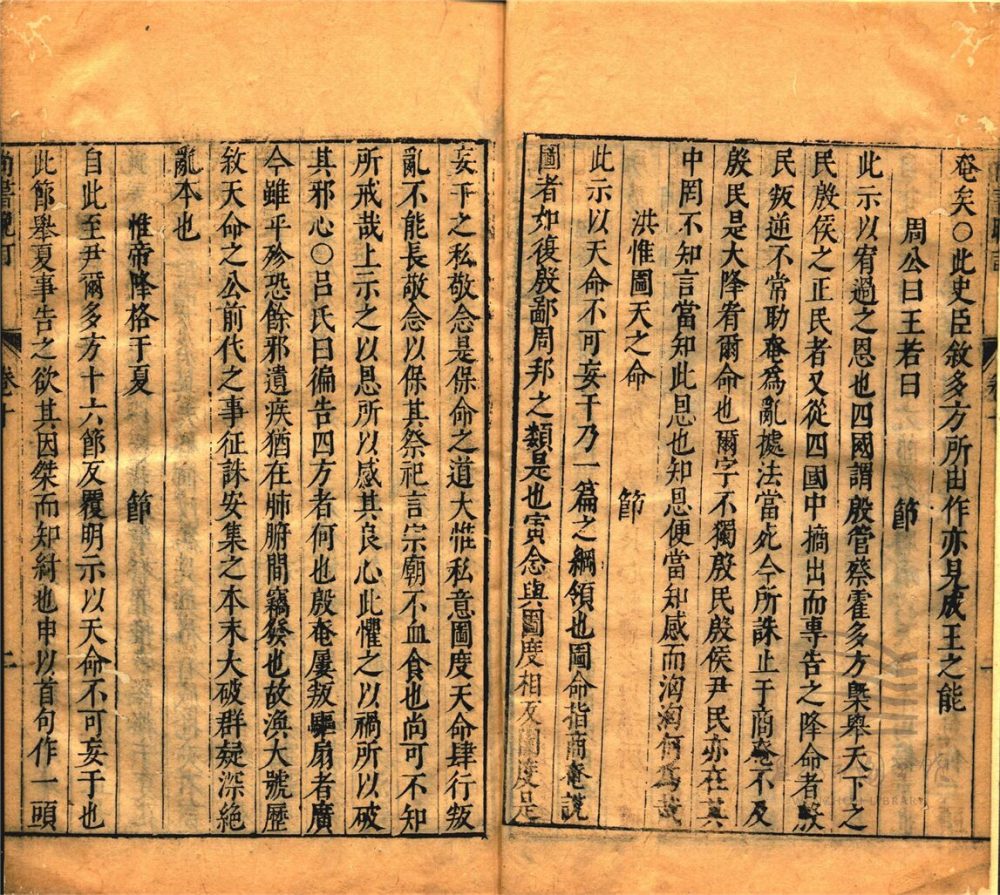 奄矣○此史臣敘多方所由作亦見成王之能
周公曰王若曰　節
此示以宥過之恩也四國謂殷管蔡霍多方槩舉天下之
民殷侯之正民者又從四國中摘出而專告之降命者殷
民叛逆不常助奄為亂據法當死今所誅止于商奄不及
殷民是大降宥爾命也爾字不獨殷民殷侯尹民亦在其
中罔不知言當知此恩也知恩便當知感而洶洶何為哉
洪惟圖天之命　節
此示以天命不可妄干乃一篇之綱領也圖命指商奄說
圖者如復殷鄙周邦之類是也寅念與圖度相反圖度是
妄干之私敬念是保命之道大惟私意圖度天命肆行叛
亂不能長敬念以保其祭祀言宗廟不血食也尚可不知
所戒哉上示之以恩所以感其良心此懼之以禍所以破
其邪心○呂氏曰徧告四方者何也殷奄屢叛驅扇者廣
今雖平殄恐餘邪遺疾猶在肺腑間竊發也故渙大號歷
敘天命之公前代之事征誅安集之本末大破群疑深絕
亂本也
惟帝降格于夏　節
自此至尹爾多方十六節反覆明示以天命不可妄于也
此節舉夏事告之欲其因桀而知紂也申以首句作一頭
卷十
LIBRARY